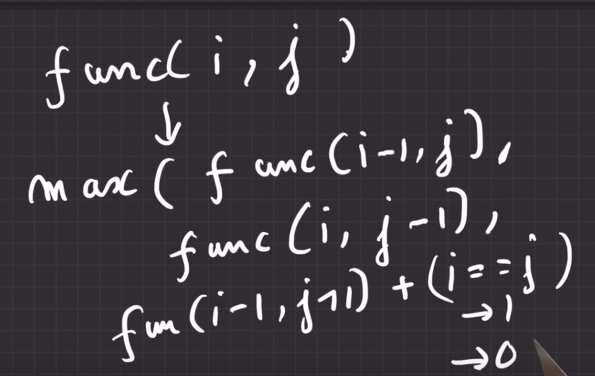 func(i, j)
↓
max(func(i-1, j),
func(i, j-1),
fun(i-1, j-1) + (i==j)
→1
→0